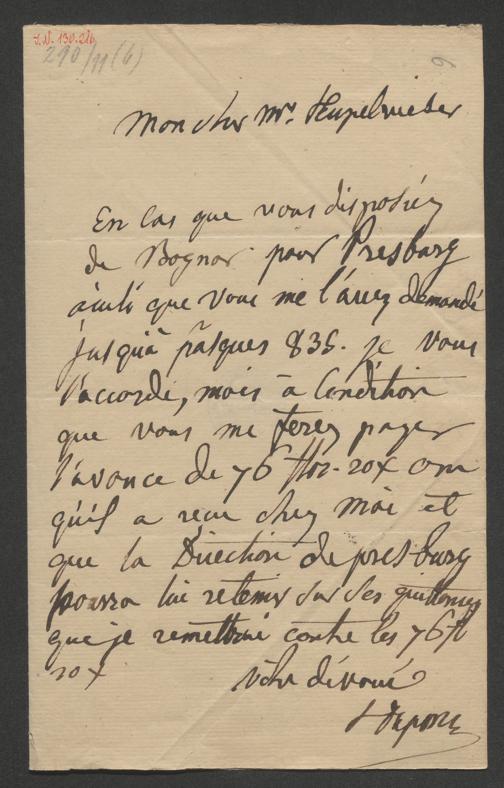 I.N. 130.216
290/11 (6)
6
Mon cher Mr. Kupelwieser
En cas que vous disposiéz
de Bognar pour Presburg
ainsi que vous me l'avez demandé
jusqu'à pâsques 835. je vous
l'accorde, mais à Condition
que vous me ferez payer
l'avance de 76 flor. 20x
qu'il a reçu chez moi et
que la Direction de presburg
pourra lui retenir sur ses quittances
que je remettrai contre les 76 fl
20x
votre dévoué
Duport